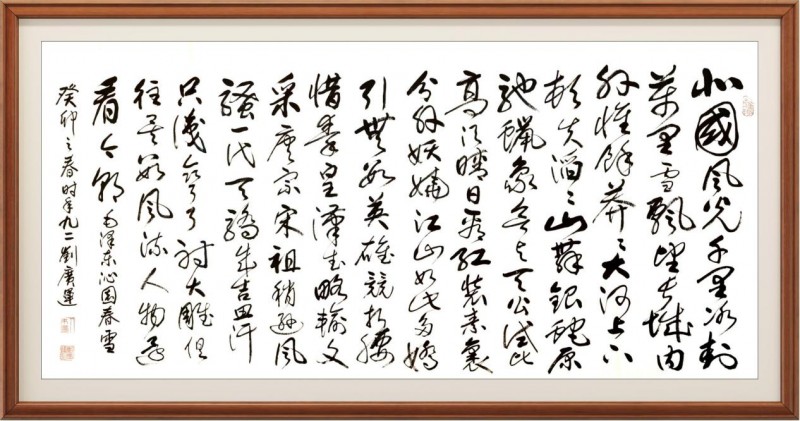 北國風光千里冰封
萬里雪飄望長城內
外惟餘莽〻大河上下
頓失滔〻山舞銀蛇原
馳蠟象欲與天公試比
高須晴日看紅裝素裹
分外妖嬈江山如此多嬌
引無數英雄競折腰
惜秦皇漢武略輸文
采唐宗宋祖稍遜風
騷一代天驕成吉思汗
只識彎弓射大雕俱
往矣數風流人物還
看今朝 毛澤東沁园春雪
癸卯之春时年九二劉廣運